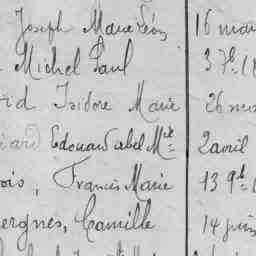 Joseph Marie Léon 16 mar
Michel Paul 3 7b
id Isidore Marie 26
iard Edouard abel Mel 2 avril
ois, Francis Marie 13 9b
ergnes, Camille 14 juin